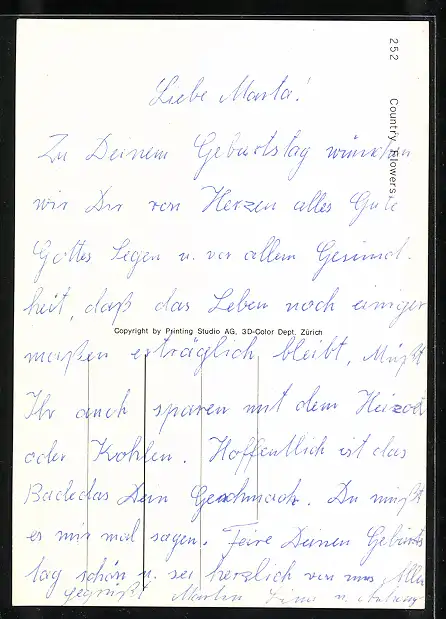 252 Country Flowers
Liebe Marta!
Zu Deinem Geburtstag wünschen
wir Dir von Herzen alles Gute
Gottes Segen u. vor allem Gesund-
heit, daß das Leben noch einiger
Copyright by Printing Studio AG, 3D-Color Dept. Zürich
maßen erträglich bleibt. Müßt
Ihr auch sparen mit dem Heizöl
oder Kohlen. Hoffentlich ist das
Badedas Dein Geschmack. Du mußt
es mir mal sagen. Feire Deinen Geburts
tag schön u. sei herzlich von uns Allen
gegrüßt Martin u.